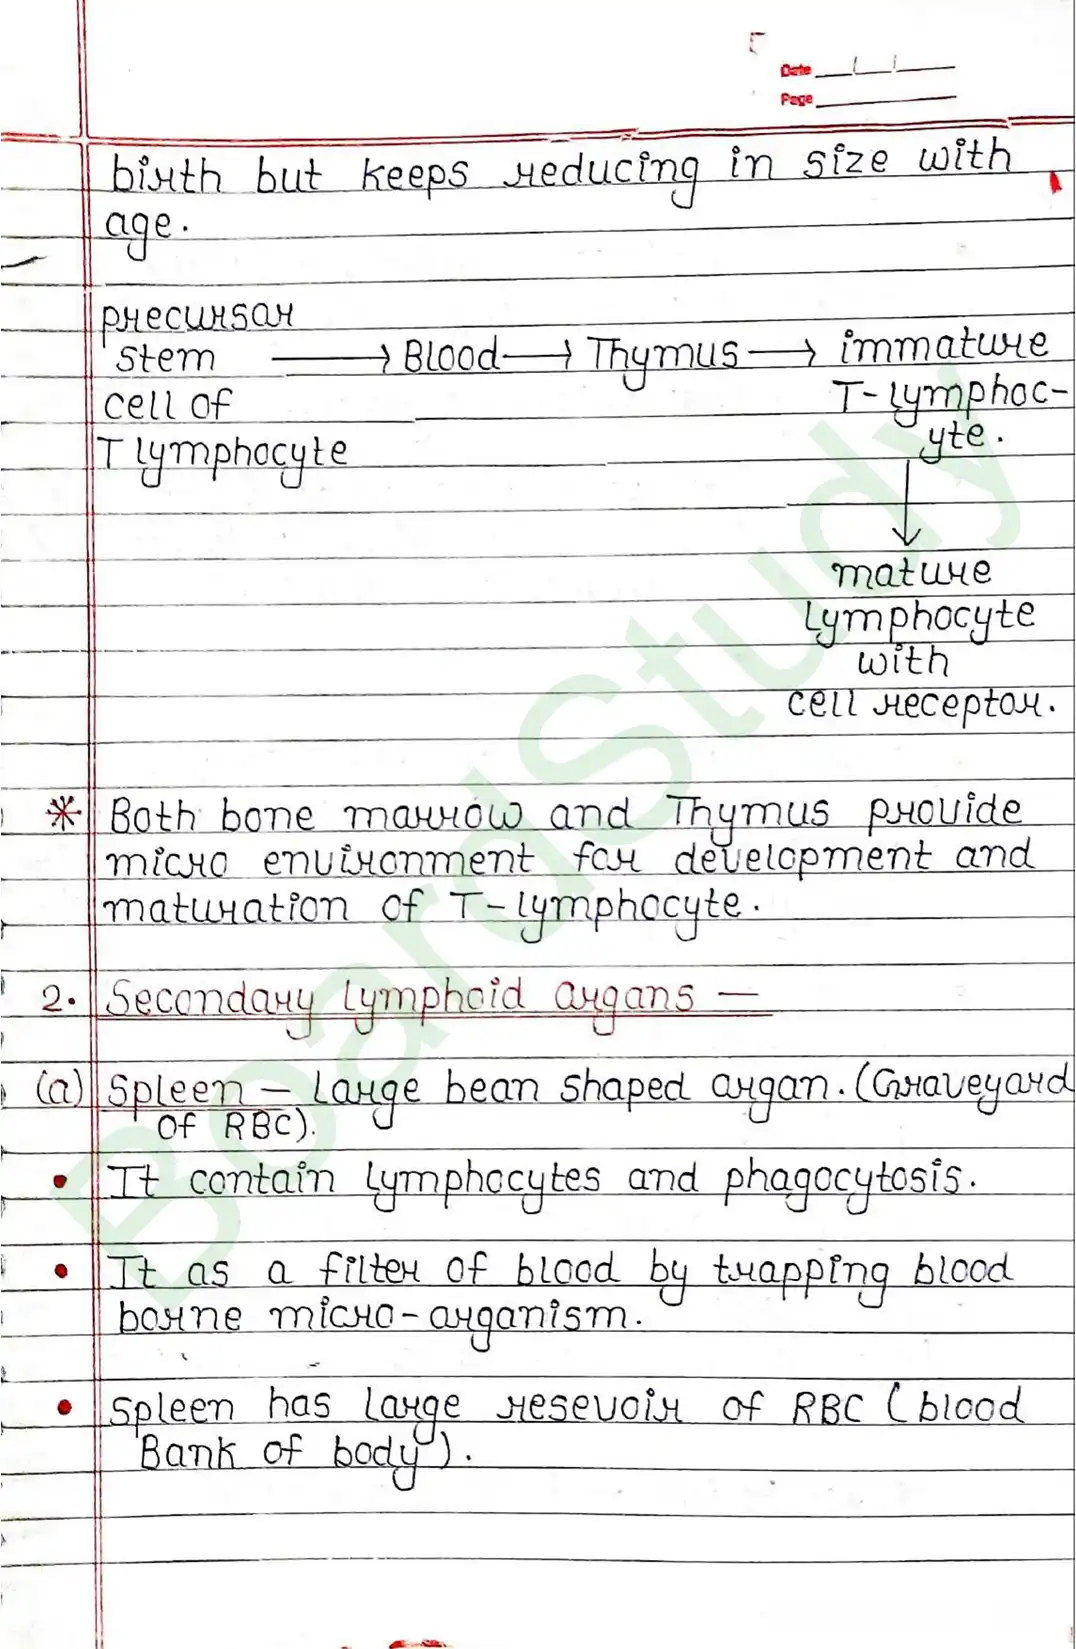 Date
Page
birth but keeps reducing in size with
age.
precursar
stem → Blood → Thymus → immature
cell of T-lymphoc-
T lymphocyte yte.
↓
mature
lymphocyte
with
cell receptor.
* Both bone marrow and Thymus provide
micro environment for development and
maturation of T-lymphocyte.
2. Secondary lymphoid organs —
(a) Spleen — Large bean shaped organ. (Graveyard
of RBC).
• It contain lymphocytes and phagocytosis.
• It as a filter of blood by trapping blood
borne micro-organism.
• Spleen has large resevoir of RBC (blood
Bank of body).
BoardStudy